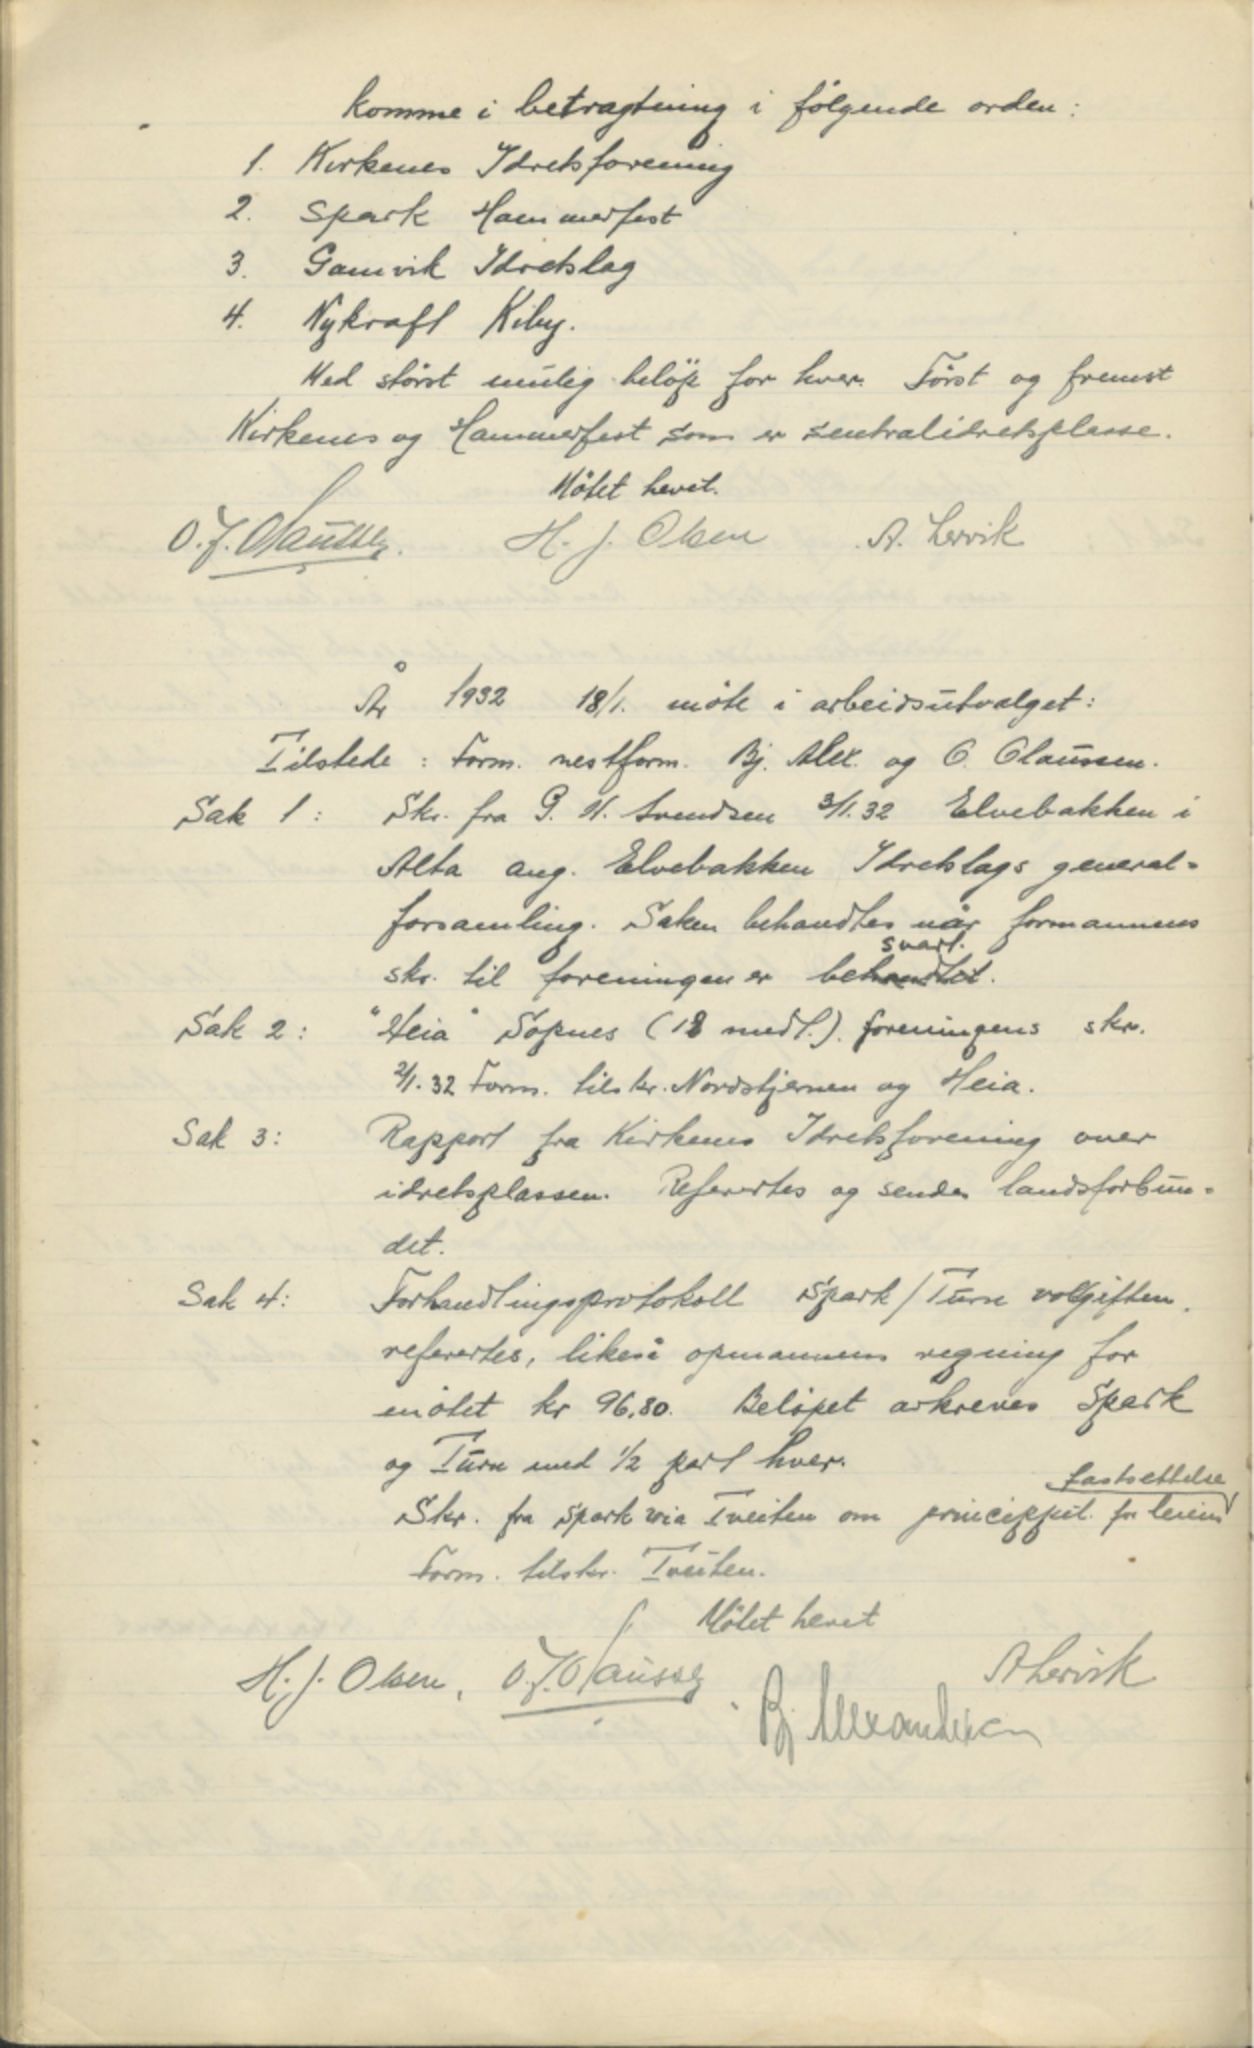 komme i betragtning i følgende orden:
1. Kirkenes Idretsforening
2. Spark Hammerfest
3. Gamvik Idretslag
4. Nykraft Kiby.
Med størst mulig beløp for hver. Först og fremst
Kirkenes og Hammerfest som er sentralidretsplasse.
Møtet hevet.
O. J. Olaussen. H. J. Olsen A. Lervik
År 1932 18/1. møte i arbeidsutvalget:
Tilstede : Form. nestform. Bj. Alex. og O. Olaussen.
Sak 1 : Skr. fra P. N. Svendsen 3/1.32 Elvebakken i
Alta ang. Elvebakken Idretslags general-
forsamling. Saken behandles når formannens
svart.
skr. til foreningen er behandlet.
Sak 2 : "Heia" Sopnes (18 medl.). foreningens skr.
2/1.32 Form. tilskr. Nordstjernen og Heia.
Sak 3: Rapport fra Kirkenes Idretsforening over
idretsplassen. Refertes og sendes landsforbun-
det.
Sak 4: Forhandlingsprotokoll Spark/Turn voldgiften
refertes, likeså opmannens regning for
møtet kr 96,80. Beløpet avkreves Spark
og Turn med 1/2 part hver.
fastsettelse
Skr. fra Spark via Tveiten om princippet for leiens
Form. tilskr. Tveiten.
Møtet hevet
H. J. Olsen, O. J. Olaussen A Lervik
Bj Alexandersen